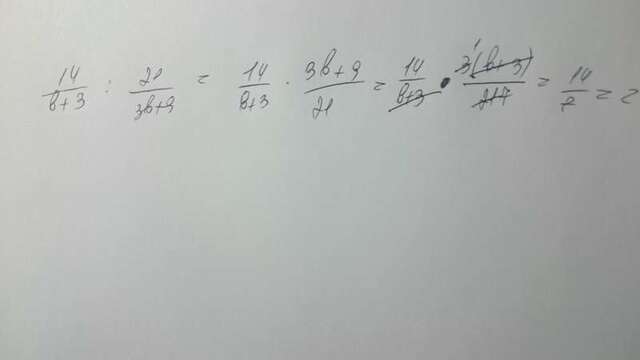 14/(b+3) : 21/(3b+9) = 14/(b+3) · (3b+9)/21 = 14/(b+3) · 3 1(b+3)/21 7 = 14/7 = 2